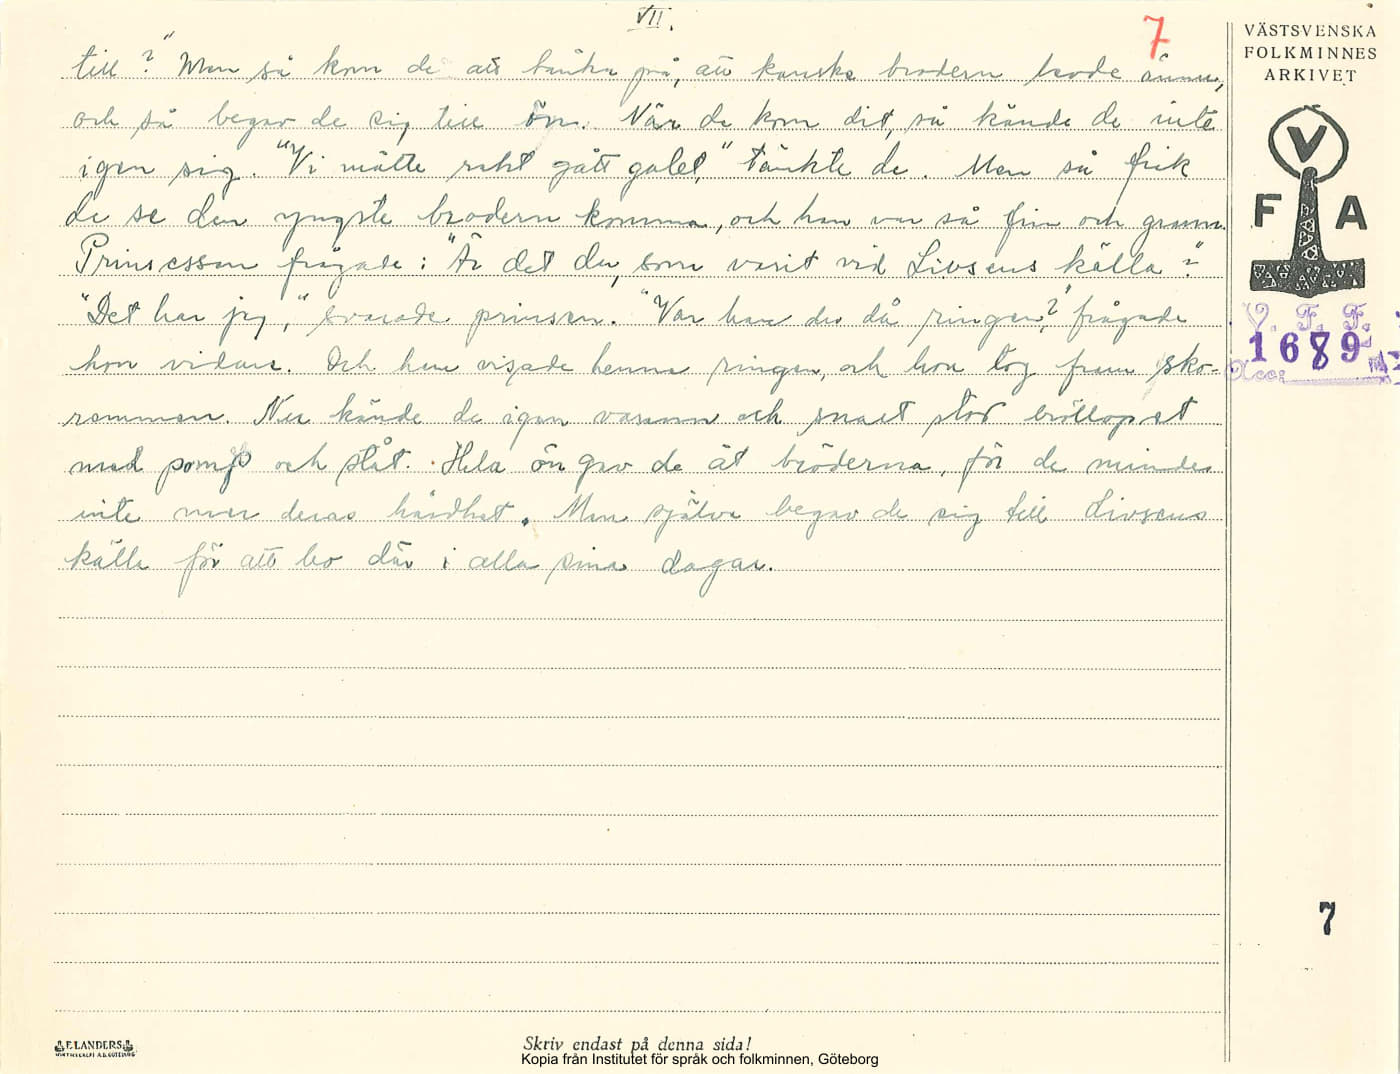 VII.
7
till?" Men så kom de att tänka på, att kanske brodern levde ännu,
och så begav de sig till ön. När de kom dit, så kände de inte
igen sig. "Vi måtte rakt gått galet," tänkte de. Men så fick
de se den yngste brodern komma, och han var så fin och grann.
Prinsessan frågade: "Är det du, som varit vid Livsens källa?"
"Det har jag," svarade prinsen. "Var har du då ringen?" frågade
hon vidare. Och han visade henne ringen, och hon tog fram sko-
remmen. Nu kände de igen varann och snart stod bröllopet
med pomp och ståt. Hela ön gav de åt bröderna, för de mindes
inte mer deras hårdhet. Men själva begav de sig till Livsens
källa för att bo där i alla sina dagar.
VÄSTSVENSKA
FOLKMINNES
ARKIVET
V
F A
V. F. F.
1689
Acc.
7
ELANDERS
Skriv endast på denna sida!
Kopia från Institutet för språk och folkminnen, Göteborg